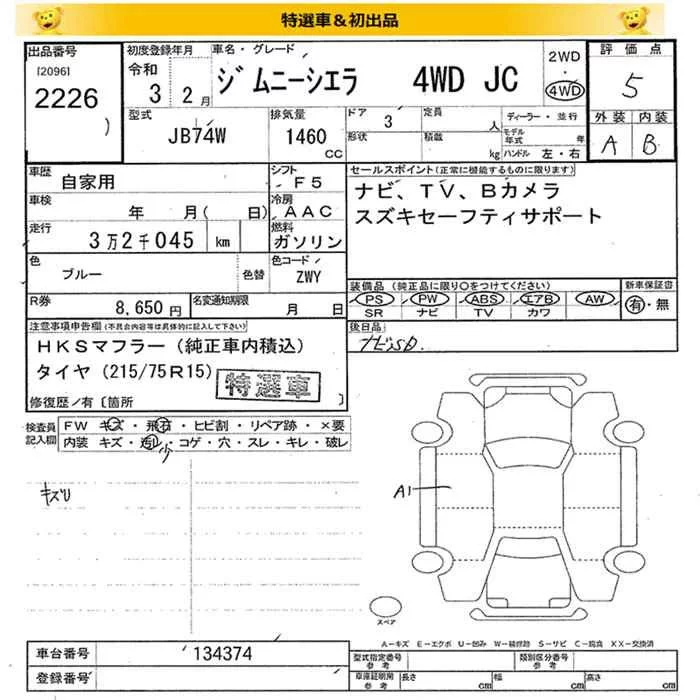 特選車＆初出品
出品番号
[2096]
2226
)
初度登録年月
令和
3 2月
車名・グレード
ジムニーシエラ 4WD JC
2WD
・
4WD
評価点
5
外装 内装
A B
型式
JB74W
排気量
1460
CC
ドア
3
形状
定員
人
積載
kg
ディーラー・並行
モデル年式 年
ハンドル 左・右
車歴
自家用
シフト
F5
車検
年 月( 日)
冷房
AAC
走行
3万2千045 km
燃料
ガソリン
色
ブルー
色替
色コード
ZWY
セールスポイント(正常に機能するものに限ります)
ナビ、TV、Bカメラ
スズキセーフティサポート
装備品(純正品に限り○をつけてください)
PS PW ABS エアB AW
SR ナビ TV カワ
新車保証書
有・無
R券
8,650円
名変通知期限
月 日
後日品
ナビSD.
注意事項申告欄(不具合内容等は具体的に記入して下さい)
HKSマフラー(純正車内積込)
タイヤ(215/75R15)
特選車
修復歴/有〔箇所 〕
検査員記入欄
FW キズ・飛石・ヒビ割・リペア跡・×要
内装 キズ・汚レ・コゲ・穴・スレ・キレ・破レ
少
キズU
A1
スペア
A－キズ E－エクボ U－凹み W－補修跡 S－サビ C－腐食 XX－交換済
車台番号
134374
登録番号
型式指定番号 参考
類別区分番号 参考
車庫証明用 参考
長さ cm
幅 cm
高さ cm